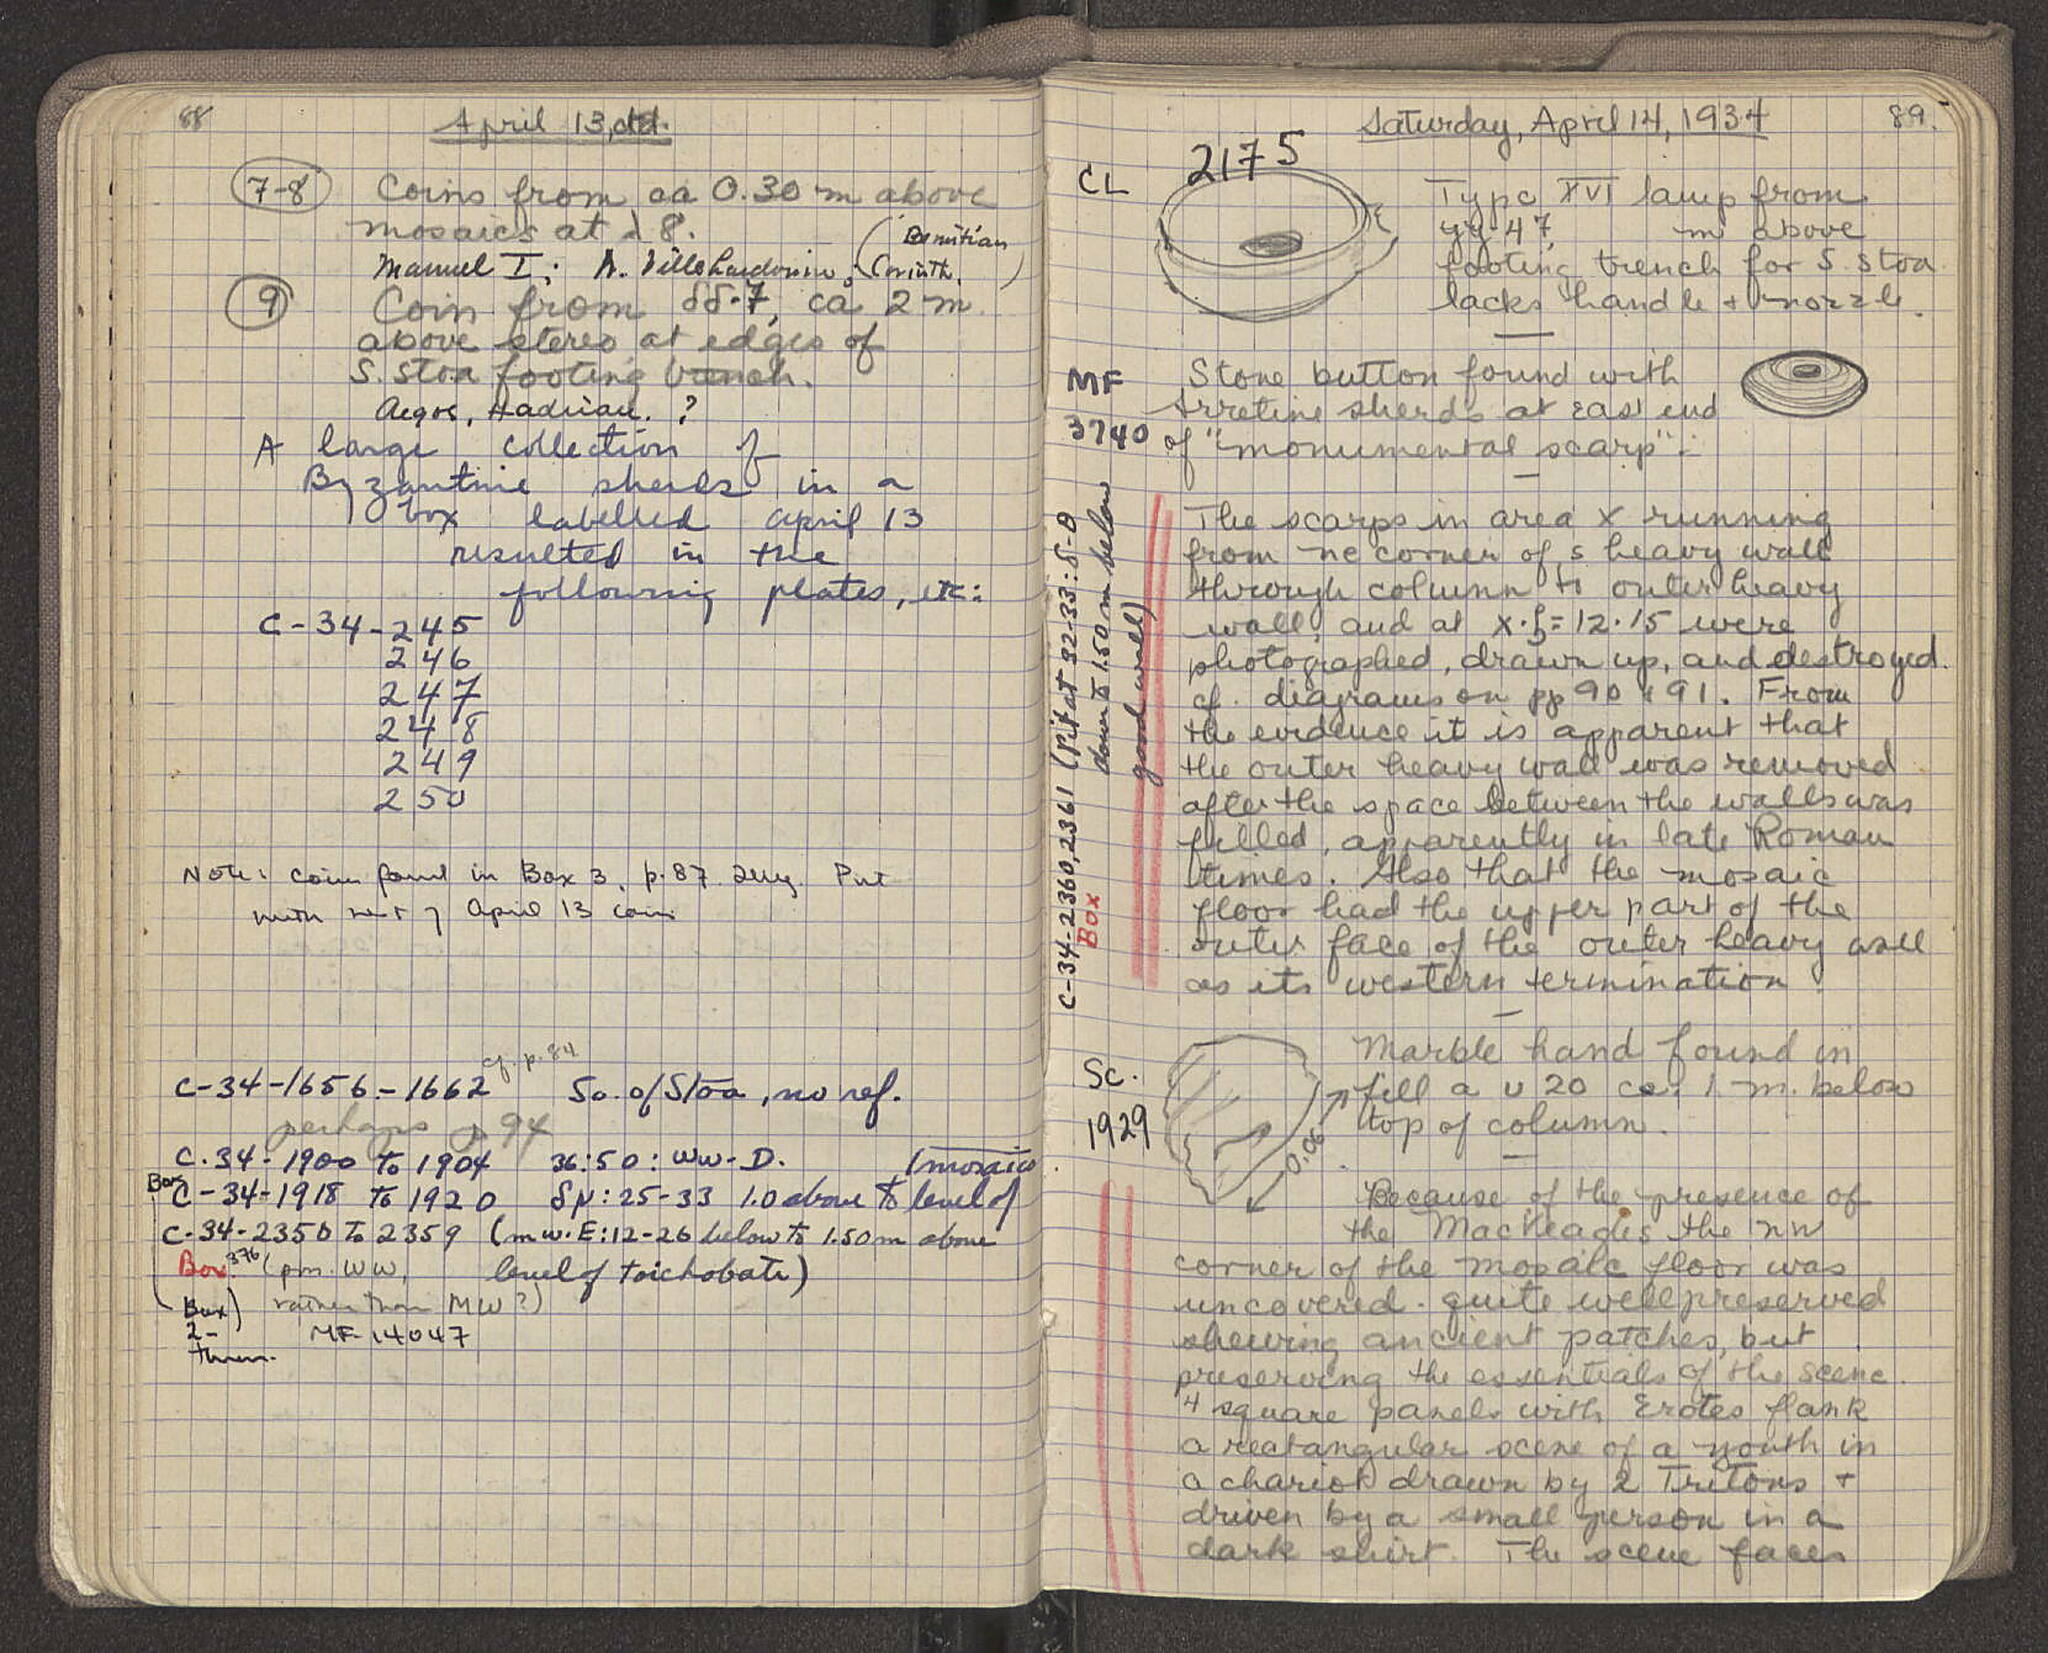 88
April 13, ctd.
7-8 Coins from ca 0.30 m above
mosaics at 8.
Manuel I; A. Villehardouin; (Corinth.
9 Coin from δδ-7, ca 2 m.
above stereo at edges of
S. Stoa footing trench.
Argos, Hadrian. ?
A large collection of
Byzantine sherds in a
box labelled April 13
resulted in the
following plates, etc:
C-34-245
246
247
248
249
250
Note: coin found in Box 3, p. 87. Put
with rest of April 13 coins
cf. p. 84
C-34-1656-1662 So. of Stoa, no ref.
perhaps p 94
C-34-1900 to 1904 36:50: WW-D. (mosaics
Box C-34-1918 to 1920 δμ: 25-33 1.0 above to level of
C-34-2350 to 2359 (mw.E: 12-26 below to 1.50 m above
Box 376 (pm. WW, level of toichobate)
Box) rather than MW?)
2- MF-14047
Saturday, April 14, 1934 89.
CL 2175
Type XVI lamp from
yy-47, m above
footing trench for S. Stoa
lacks handle + nozzle.
MF 3740
Stone button found with
Arretine sherds at east end
of "monumental scarp".
C-34-2360, 2361 (Pit at 32-33: δ-θ
down to 1.50 m below
good wall)
Box
The scarps in area x running
from ne corner of s heavy wall
through column to outer heavy
wall, and at x·ζ=12·15 were
photographed, drawn up, and destroyed.
cf. diagrams on pp 90 & 91. From
the evidence it is apparent that
the outer heavy wall was removed
after the space between the walls was
filled, apparently in late Roman
times. Also that the mosaic
floor had the upper part of the
outer face of the outer heavy wall
as its western termination.
Sc. 1929
0.06
Marble hand found in
fill a υ 20 ca. 1 m. below
top of column.
Because of the presence of
the MacKeagies the nw
corner of the mosaic floor was
uncovered - quite well preserved
shewing ancient patches, but
preserving the essentials of the scene.
4 square panels with Erotes flank
a rectangular scene of a youth in
a chariot drawn by 2 Tritons +
driven by a small person in a
dark shirt. The scene faces